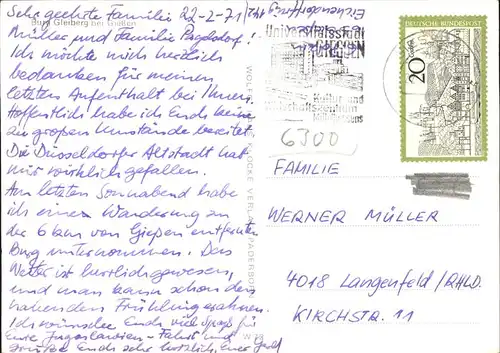 Sehr geehrte Familie 22-2-71
Müller und Familie
Burg Gleiberg bei Gießen
Ich möchte mich herzlich
bedanken für meinen
letzten Aufenthalt bei Ihnen.
Hoffentlich habe ich Euch keine
zu großen Umstände bereitet.
Die Düsseldorfer Altstadt hat
mir wirklich gefallen.
Am letzten Sonnabend habe
ich eine Wanderung zu
der 6 km von Gießen entfernten
Burg unternommen. Das
Wetter ist herrlich gewesen,
und man kann schon den
nahenden Frühling erahnen.
Ich wünsche Euch viel Spaß für
Eure Jugoslawien-Fahrt und
grüße Euch sehr herzlich, Euer
Universitätsstadt
GIESSEN
Kultur- und
Wirtschaftszentrum
Mittelhessen
DEUTSCHE BUNDESPOST
20
6300
FAMILIE
WERNER MÜLLER
4018 Langenfeld/RHLD.
KIRCHSTR. 11